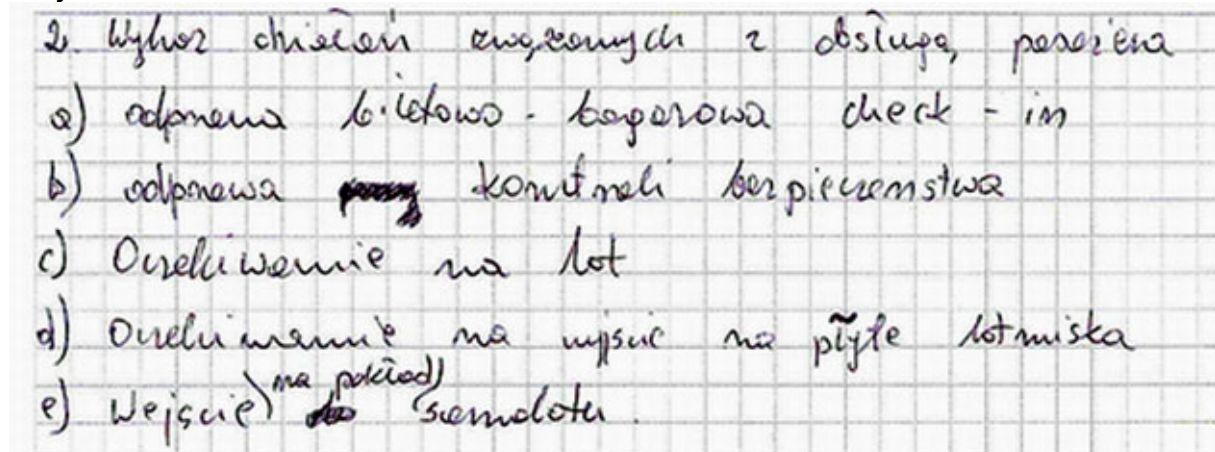 2. Wykaz działań związanych z obsługą pasażera
a) odprawa biletowo - bagażowa check - in
b) odprawa kontroli bezpieczeństwa
c) Oczekiwanie na lot
d) Oczekiwanie na wyjście na płytę lotniska
e) Wejście na pokład samolotu.